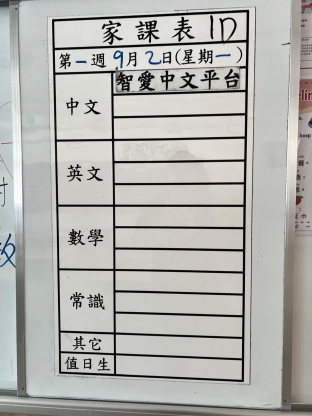 家課表 1D
第一週 9月2日(星期一)
中文
智愛中文平台
英文
數學
常識
其它
值日生